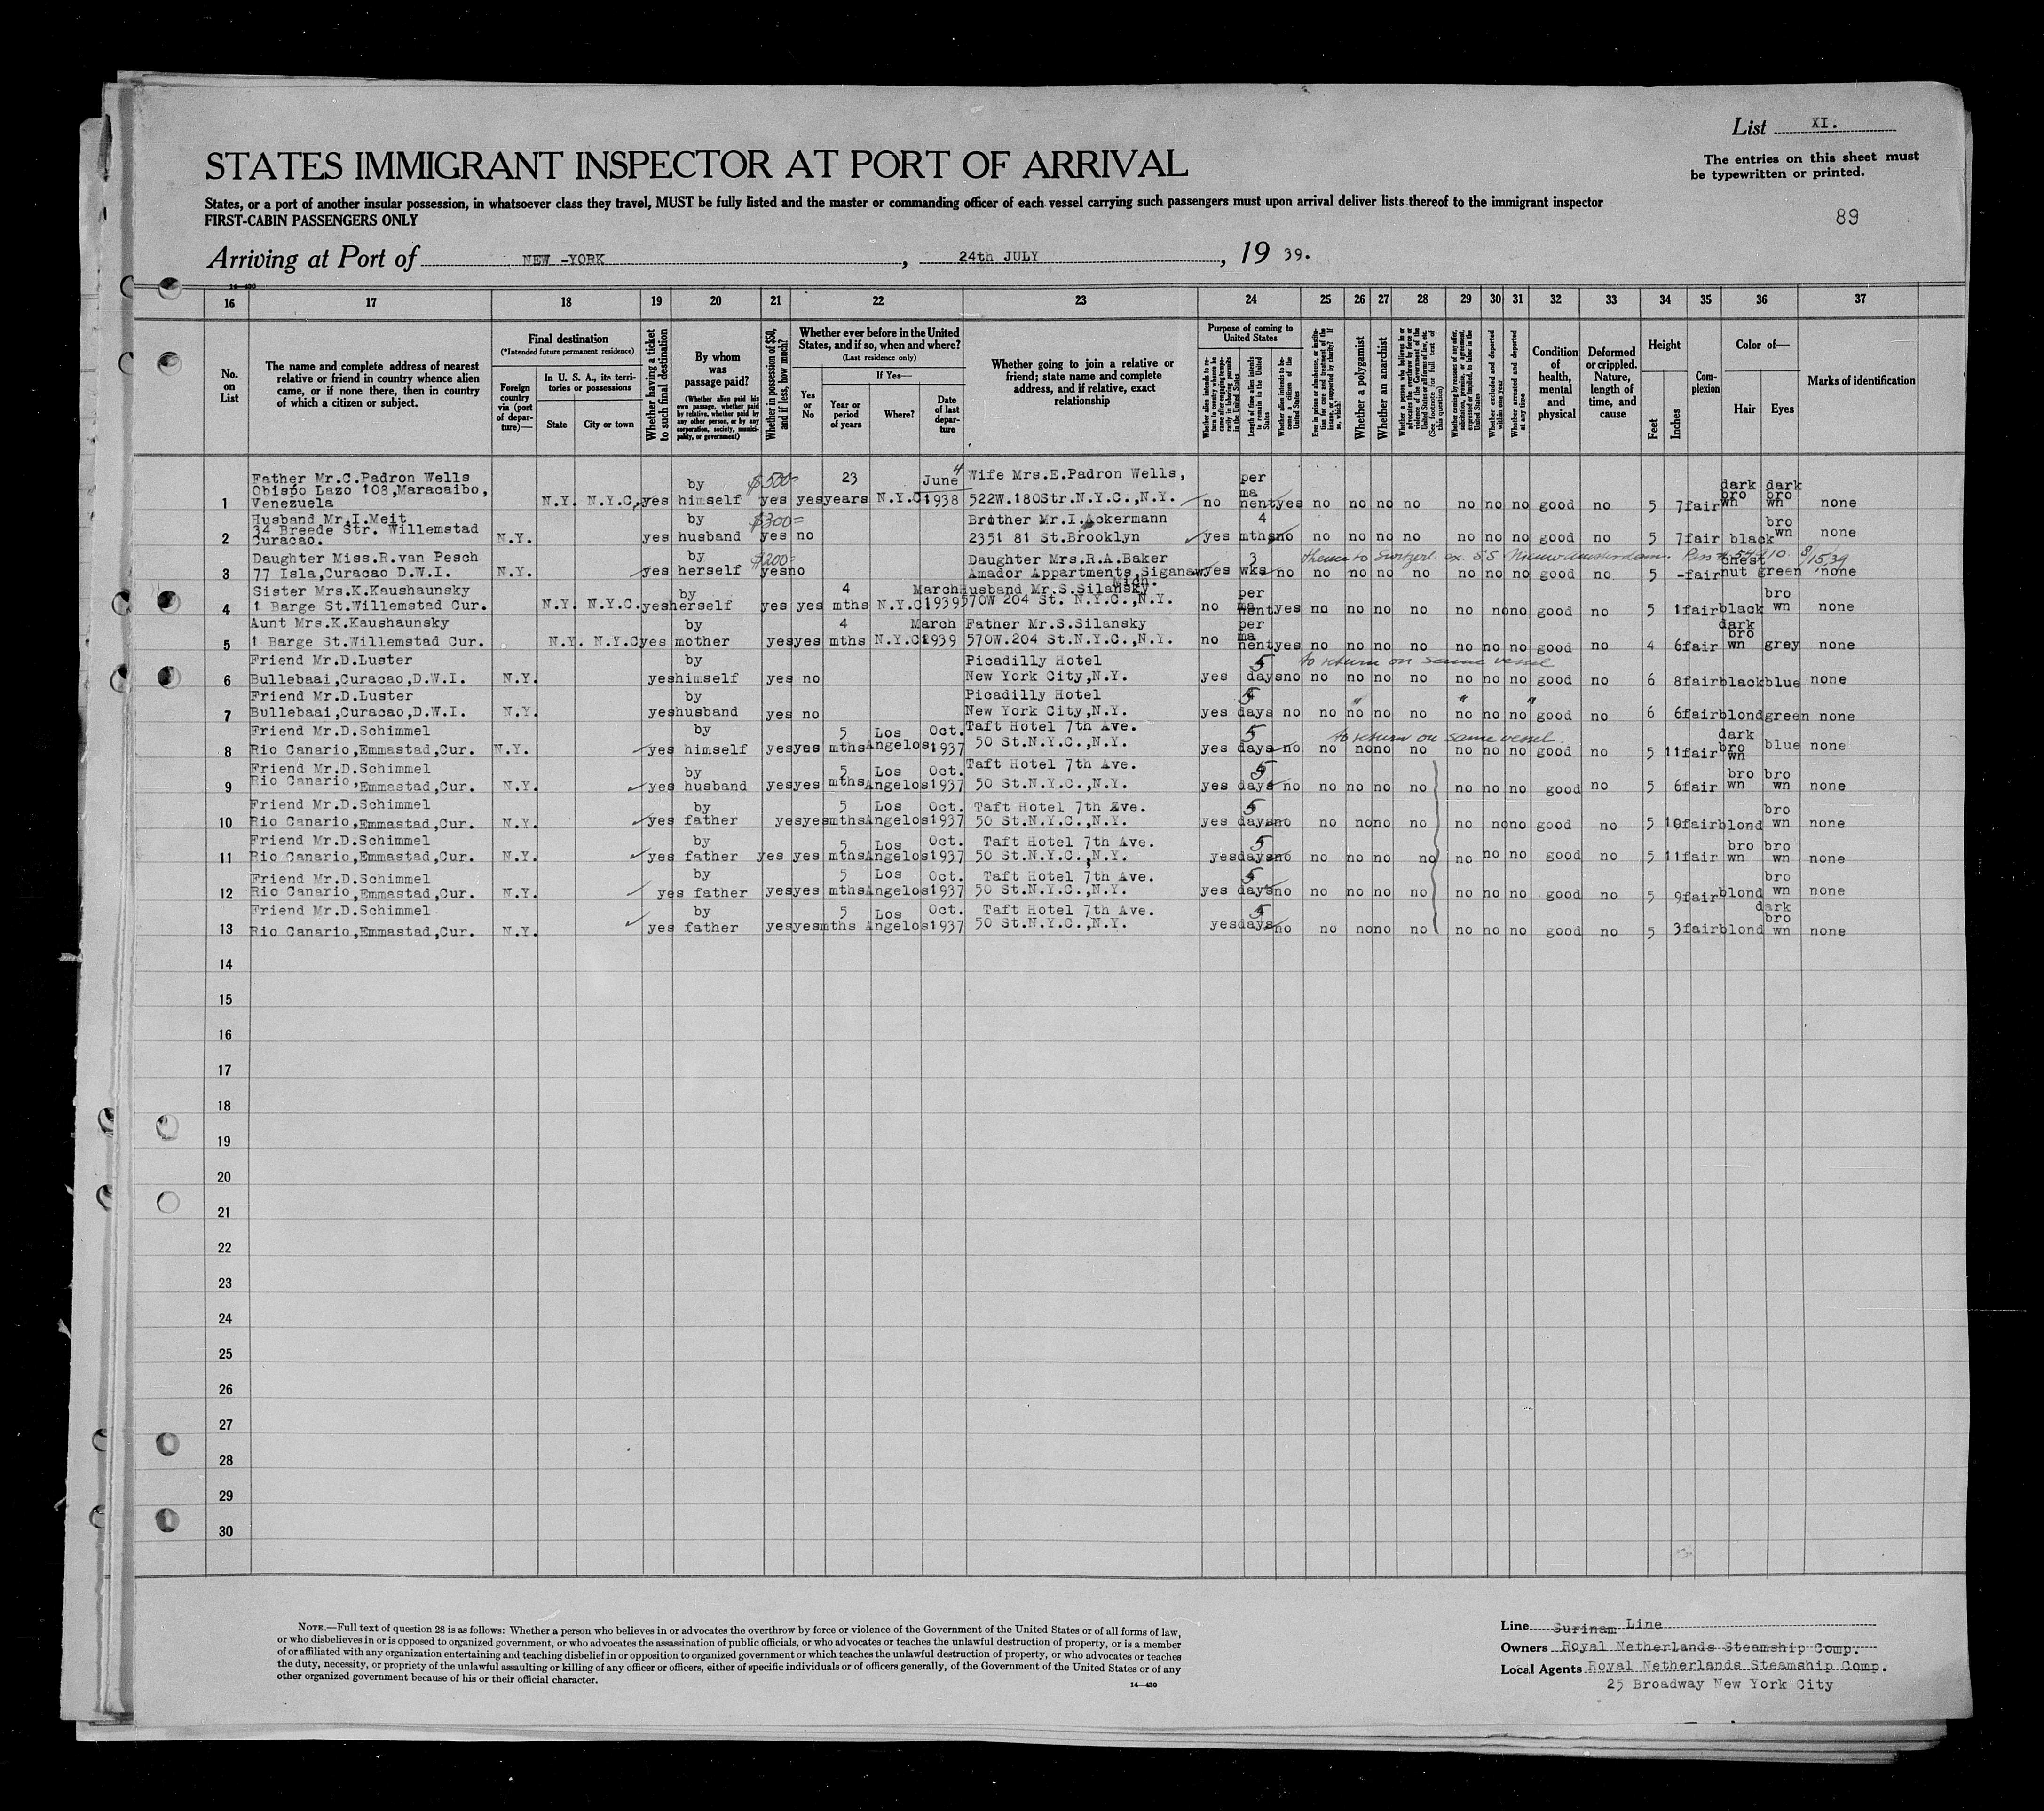 List XI.
The entries on this sheet must
be typewritten or printed.
STATES IMMIGRANT INSPECTOR AT PORT OF ARRIVAL
States, or a port of another insular possession, in whatsoever class they travel, MUST be fully listed and the master or commanding officer of each vessel carrying such passengers must upon arrival deliver lists thereof to the immigrant inspector
FIRST-CABIN PASSENGERS ONLY
89
Arriving at Port of NEW -YORK , 24th JULY , 19 39.
16 17 18 19 20 21 22 23 24 25 26 27 28 29 30 31 32 33 34 35 36 37
No. on List
The name and complete address of nearest relative or friend in country whence alien came, or if none there, then in country of which a citizen or subject.
Final destination
(*Intended future permanent residence)
Foreign country via (port of departure)—
In U. S. A., its territories or possessions
State
City or town
Whether having a ticket to such final destination
By whom was passage paid?
(Whether alien paid his own passage, whether paid by relative, whether paid by any other person, or by any corporation, society, municipality, or government)
Whether in possession of $50, and if less, how much?
Whether ever before in the United States, and if so, when and where?
(Last residence only)
Yes or No
If Yes—
Year or period of years
Where?
Date of last departure
Whether going to join a relative or friend; state name and complete address, and if relative, exact relationship
Purpose of coming to United States
Length of time alien intends to remain in the United States
Whether alien intends to become a citizen of the United States
Whether a polygamist
Whether an anarchist
Whether excluded and deported within one year
Whether arrested and deported at any time
Condition of health, mental and physical
Deformed or crippled. Nature, length of time, and cause
Height
Feet
Inches
Complexion
Color of—
Hair
Eyes
Marks of identification
1 Father Mr.C.Padron Wells Obispo Lazo 108,Maracaibo, Venezuela N.Y. N.Y.C. yes by himself $500 yes yes 23 years N.Y.C. June 4 1938 Wife Mrs.E.Padron Wells, 522W.180Str.N.Y.C.,N.Y. no per ma nent yes no no no no no no no good no 5 7 fair dark bro wn dark bro wn none
2 Husband Mr.I.Meit 34 Breede Str. Willemstad Curacao. N.Y. yes by husband $300= yes no Brother Mr.I.Ackermann 2351 81 St.Brooklyn yes 4 mths no no no no no no no no good no 5 7 fair black bro wn none
3 Daughter Miss.R.van Pesch 77 Isla,Curacao D.W.I. N.Y. yes by herself $200= yes no Daughter Mrs.R.A.Baker Amador Appartments,Siganaw yes 3 wks no no no no no no no no good no 5 - fair chest nut green none
thence to Switzerl. ex. S.S Nieuw Amsterdam.
4 Sister Mrs.K.Kaushaunsky 1 Barge St.Willemstad Cur. N.Y. N.Y.C. yes by herself yes yes 4 mths N.Y.C March 1939 Husband Mr.S.Silansky 570W 204 St. N.Y.C.,N.Y. no per ma nent yes no no no no no no no good no 5 1 fair black bro wn none
5 Aunt Mrs.K.Kaushaunsky 1 Barge St.Willemstad Cur. N.Y. N.Y.C yes by mother yes yes 4 mths N.Y.C March 1939 Father Mr.S.Silansky 570W.204 St.N.Y.C.,N.Y. no per ma nent yes no no no no no no no good no 4 6 fair dark bro wn grey none
6 Friend Mr.D.Luster Bullebaai,Curacao,D.W.I. N.Y. yes by himself yes no Picadilly Hotel New York City,N.Y. yes 5 days no no no no no no no no good no 6 8 fair black blue none
to return on same vessel
7 Friend Mr.D.Luster Bullebaai,Curacao,D.W.I. N.Y. yes by husband yes no Picadilly Hotel New York City,N.Y. yes 5 days no no no no no no no no good no 6 6 fair blond green none
" " "
8 Friend Mr.D.Schimmel Rio Canario,Emmastad,Cur. N.Y. yes by himself yes yes 5 mths Los Angelos Oct. 1937 Taft Hotel 7th Ave. 50 St.N.Y.C.,N.Y. yes 5 days no no no no no no no no good no 5 11 fair dark bro wn blue none
to return on same vessel
9 Friend Mr.D.Schimmel Rio Canario,Emmastad,Cur. N.Y. yes by husband yes yes 5 mths Los Angelos Oct. 1937 Taft Hotel 7th Ave. 50 St.N.Y.C.,N.Y. yes 5 days no no no no no no no no good no 5 6 fair bro wn bro wn none
10 Friend Mr.D.Schimmel Rio Canario,Emmastad,Cur. N.Y. yes by father yes yes 5 mths Los Angelos Oct. 1937 Taft Hotel 7th Ave. 50 St.N.Y.C.,N.Y. yes 5 days no no no no no no no no good no 5 10 fair blond bro wn none
11 Friend Mr.D.Schimmel Rio Canario,Emmastad,Cur. N.Y. yes by father yes yes 5 mths Los Angelos Oct. 1937 Taft Hotel 7th Ave. 50 St.N.Y.C.,N.Y. yes 5 days no no no no no no no no good no 5 11 fair bro wn bro wn none
12 Friend Mr.D.Schimmel Rio Canario,Emmastad,Cur. N.Y. yes by father yes yes 5 mths Los Angelos Oct. 1937 Taft Hotel 7th Ave. 50 St.N.Y.C.,N.Y. yes 5 days no no no no no no no no good no 5 9 fair blond bro wn none
13 Friend Mr.D.Schimmel Rio Canario,Emmastad,Cur. N.Y. yes by father yes yes 5 mths Los Angelos Oct. 1937 Taft Hotel 7th Ave. 50 St.N.Y.C.,N.Y. yes 5 days no no no no no no no no good no 5 3 fair blond dark bro wn none
14
15
16
17
18
19
20
21
22
23
24
25
26
27
28
29
30
NOTE.—Full text of question 28 is as follows: Whether a person who believes in or advocates the overthrow by force or violence of the Government of the United States or of all forms of law,
or who disbelieves in or is opposed to organized government, or who advocates the assassination of public officials, or who advocates or teaches the unlawful destruction of property, or is a member
of or affiliated with any organization entertaining and teaching disbelief in or opposition to organized government or which teaches the unlawful destruction of property, or who advocates or teaches
the duty, necessity, or propriety of the unlawful assaulting or killing of any officer or officers, either of specific individuals or of officers generally, of the Government of the United States or of any
other organized government because of his or their official character.
14—430
Line Surinam Line
Owners Royal Netherlands Steamship Comp.
Local Agents Royal Netherlands Steamship Comp.
25 Broadway New York City